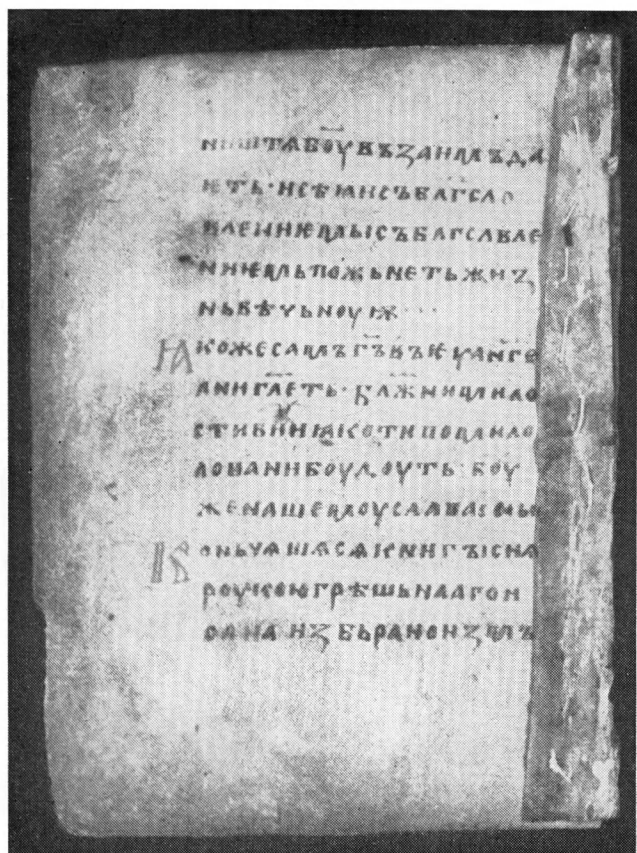 ништа б҃оу възаимъ да
ѥть · и сѣꙗи съ бл҃гсло
влениѥмьꙇ съ бл҃гслвле
ниѥмь пожьнеть жиз
нь вѣчьноуѭ ···
Ꙗкоже самъ г҃ъ въ ѥуанге
лии гл҃еть · бл҃жнии мило
стивии ꙗко ти помило
овани боудоуть · боу
же нашемоу слава
Коньчѧша сѧ книгъі си
роукою грѣшьнааго и
оана избьрано из мъ